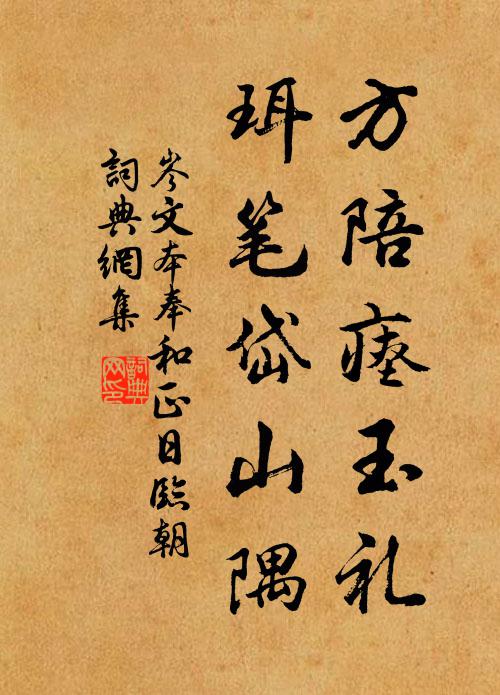 方陪瘗玉礼
珥笔岱山隅
岑文本奉和正日臨朝
詞典網集
詞典网印